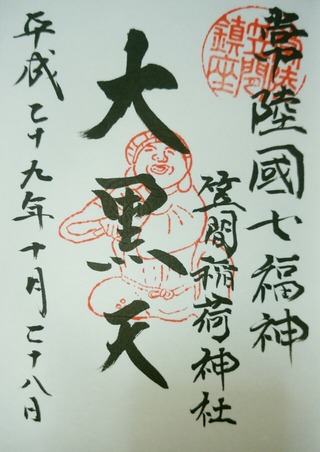 常陸國七福神
笠間稲荷神社
大黒天
平成二十九年十月二十八日